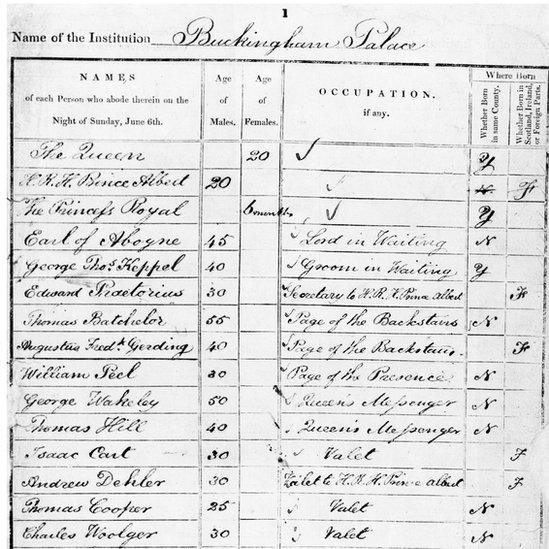 1
Name of the Institution Buckingham Palace
NAMES
of each Person who abode therein on the
Night of Sunday, June 6th.
Age
of
Males.
Age
of
Females.
OCCUPATION.
if any.
Where Born
Whether Born
in same County.
Whether Born in
Scotland, Ireland,
or Foreign Parts.
The Queen 20 Y
H.R.H. Prince Albert 20 N F
The Princess Royal 6 months Y
Earl of Aboyne 45 Lord in Waiting N
George Thos. Keppel 40 Groom in Waiting Y
Edward Praetorius 30 Secretary to H.R.H. Prince Albert F
Thomas Batchelor 55 Page of the Backstairs N
Augustus Fredk. Gerding 40 Page of the Backstairs. F
William Peel 30 Page of the Presence N
George Wakeley 50 Queen's Messenger N
Thomas Hill 40 Queen's Messenger N
Isaac Cart 30 Valet F
Andrew Dehler 30 Valet to H.R.H. Prince Albert F
Thomas Cooper 25 Valet N
Charles Woolger 30 Valet N